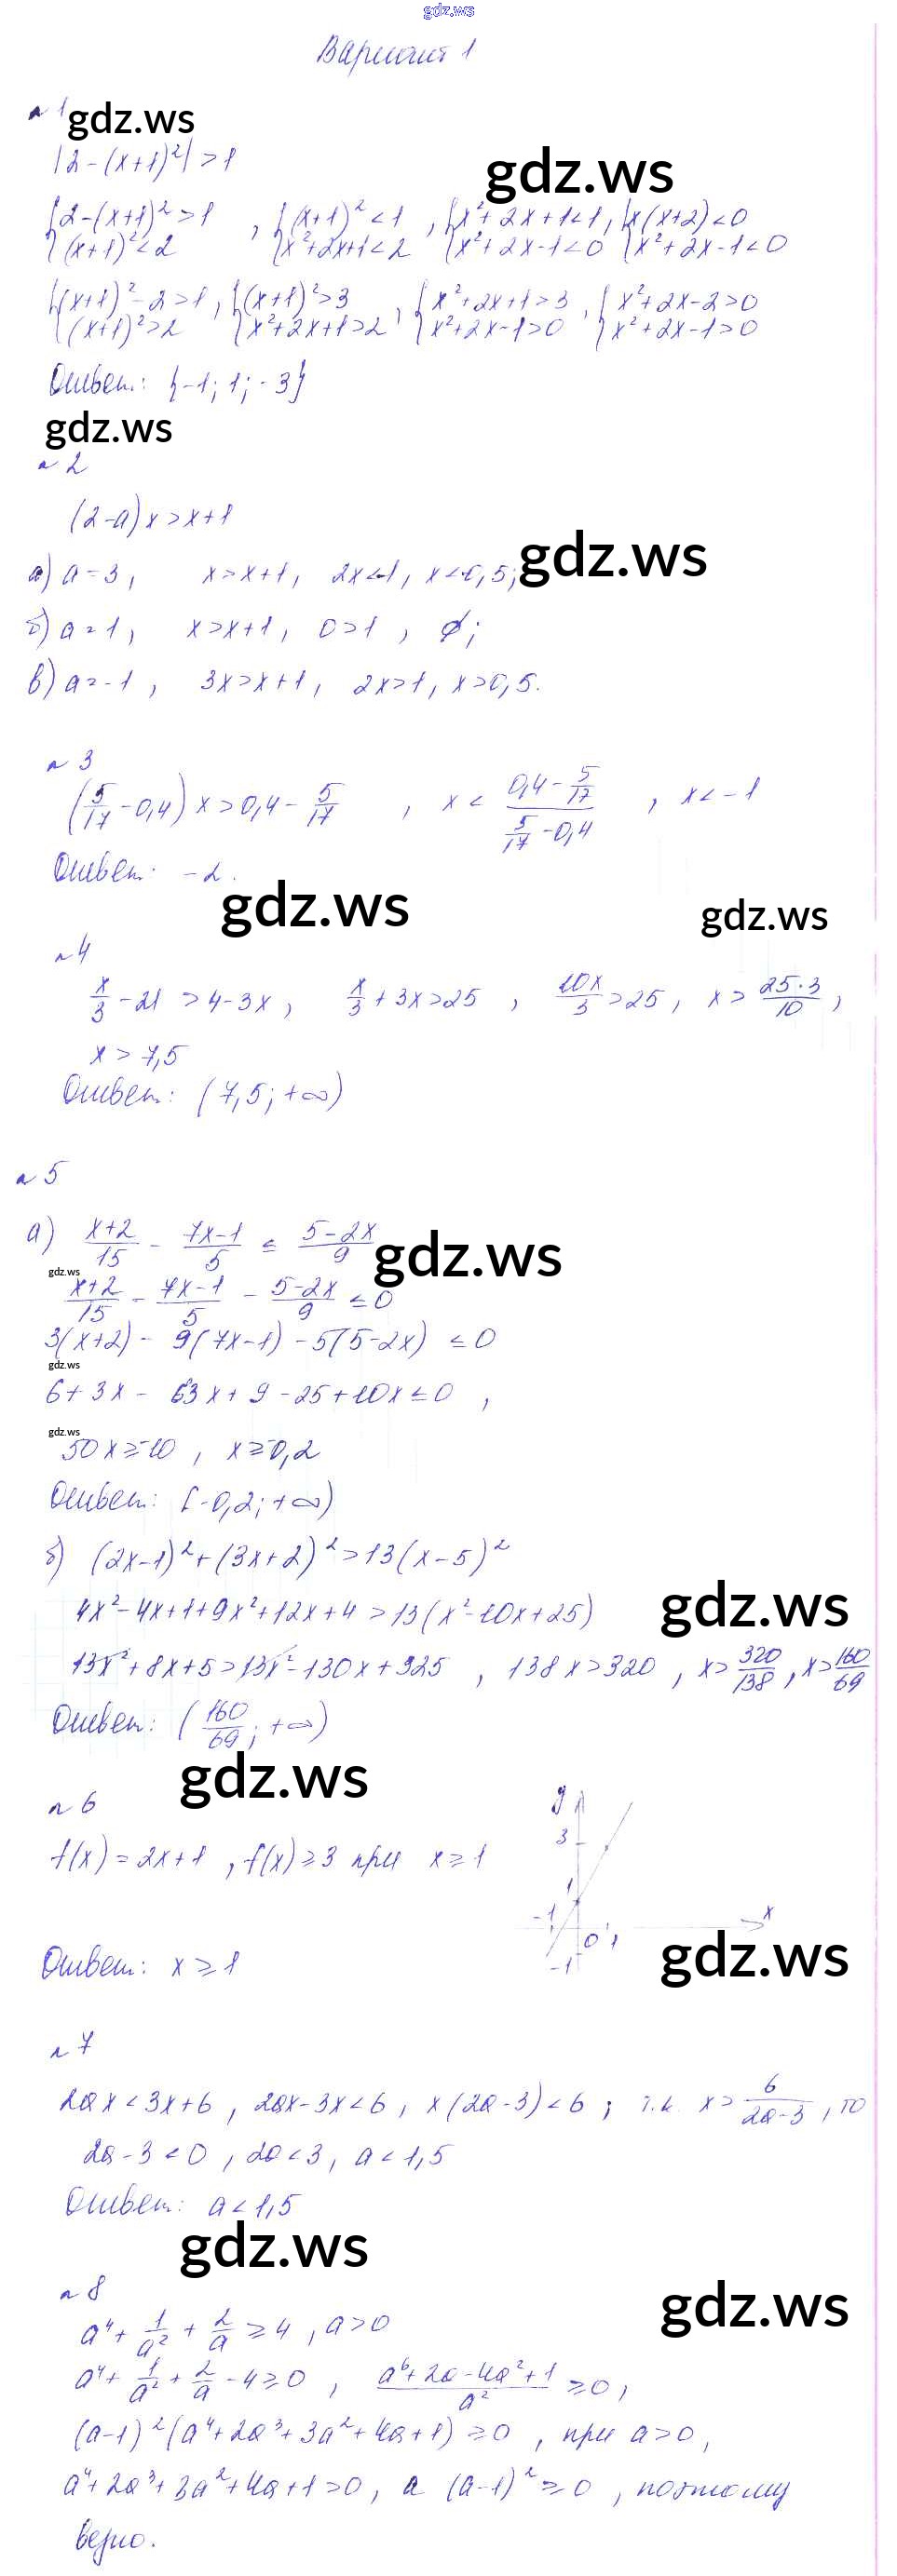 gdz.ws
Вариант 1
№ 1 gdz.ws
|2-(x+1)²|>1 gdz.ws
{2-(x+1)²>1 (x+1)²<2 , {(x+1)²<1 x²+2x+1<2 , {x²+2x+1<1 x²+2x-1<0 , {x(x+2)<0 x²+2x-1<0
{(x+1)²-2>1 (x+1)²>2 , {(x+1)²>3 x²+2x+1>2 , {x²+2x+1>3 x²+2x-1>0 , {x²+2x-2>0 x²+2x-1>0
Ответ: {-1; 1; -3}
gdz.ws
№ 2
(2-a)x>x+1
а) a=3, x>x+1, 2x<-1, x<-0,5; gdz.ws
б) a=1, x>x+1, 0>1, ∅;
в) a=-1, 3x>x+1, 2x>1, x>0,5.
№ 3
(5/17-0,4)x>0,4-5/17 , x< (0,4-5/17)/(5/17-0,4) , x<-1
Ответ: -2.
gdz.ws gdz.ws
№ 4
x/3-21>4-3x, x/3+3x>25, 10x/3>25, x>25·3/10,
x>7,5
Ответ: (7,5; +∞)
№ 5
а) (x+2)/15 - (7x-1)/5 ≤ (5-2x)/9 gdz.ws
gdz.ws
(x+2)/15 - (7x-1)/5 - (5-2x)/9 ≤0
3(x+2) - 9(7x-1) - 5(5-2x) ≤0
gdz.ws
6+3x-63x+9-25+10x≤0,
gdz.ws
50x≥-10, x≥-0,2
Ответ: [-0,2; +∞)
б) (2x-1)²+(3x+2)²>13(x-5)²
4x²-4x+1+9x²+12x+4>13(x²-10x+25) gdz.ws
13x²+8x+5>13x²-130x+325, 138x>320, x>320/138, x>160/69
Ответ: (160/69; +∞)
gdz.ws
№ 6
f(x)=2x+1, f(x)≥3 при x≥1
y
3
1
-1 0 1 x
-1
gdz.ws
Ответ: x≥1
№ 7
2ax<3x+6, 2ax-3x<6, x(2a-3)<6; т.к. x>6/(2a-3), то
2a-3<0, 2a<3, a<1,5
Ответ: a<1,5
gdz.ws
№ 8 gdz.ws
a⁴+1/a²+2/a≥4, a>0
a⁴+1/a²+2/a-4≥0, (a⁶+2a-4a²+1)/a²≥0,
(a-1)²(a⁴+2a³+3a²+4a+1)≥0, при a>0,
a⁴+2a³+3a²+4a+1>0, а (a-1)²≥0, поэтому
верно.